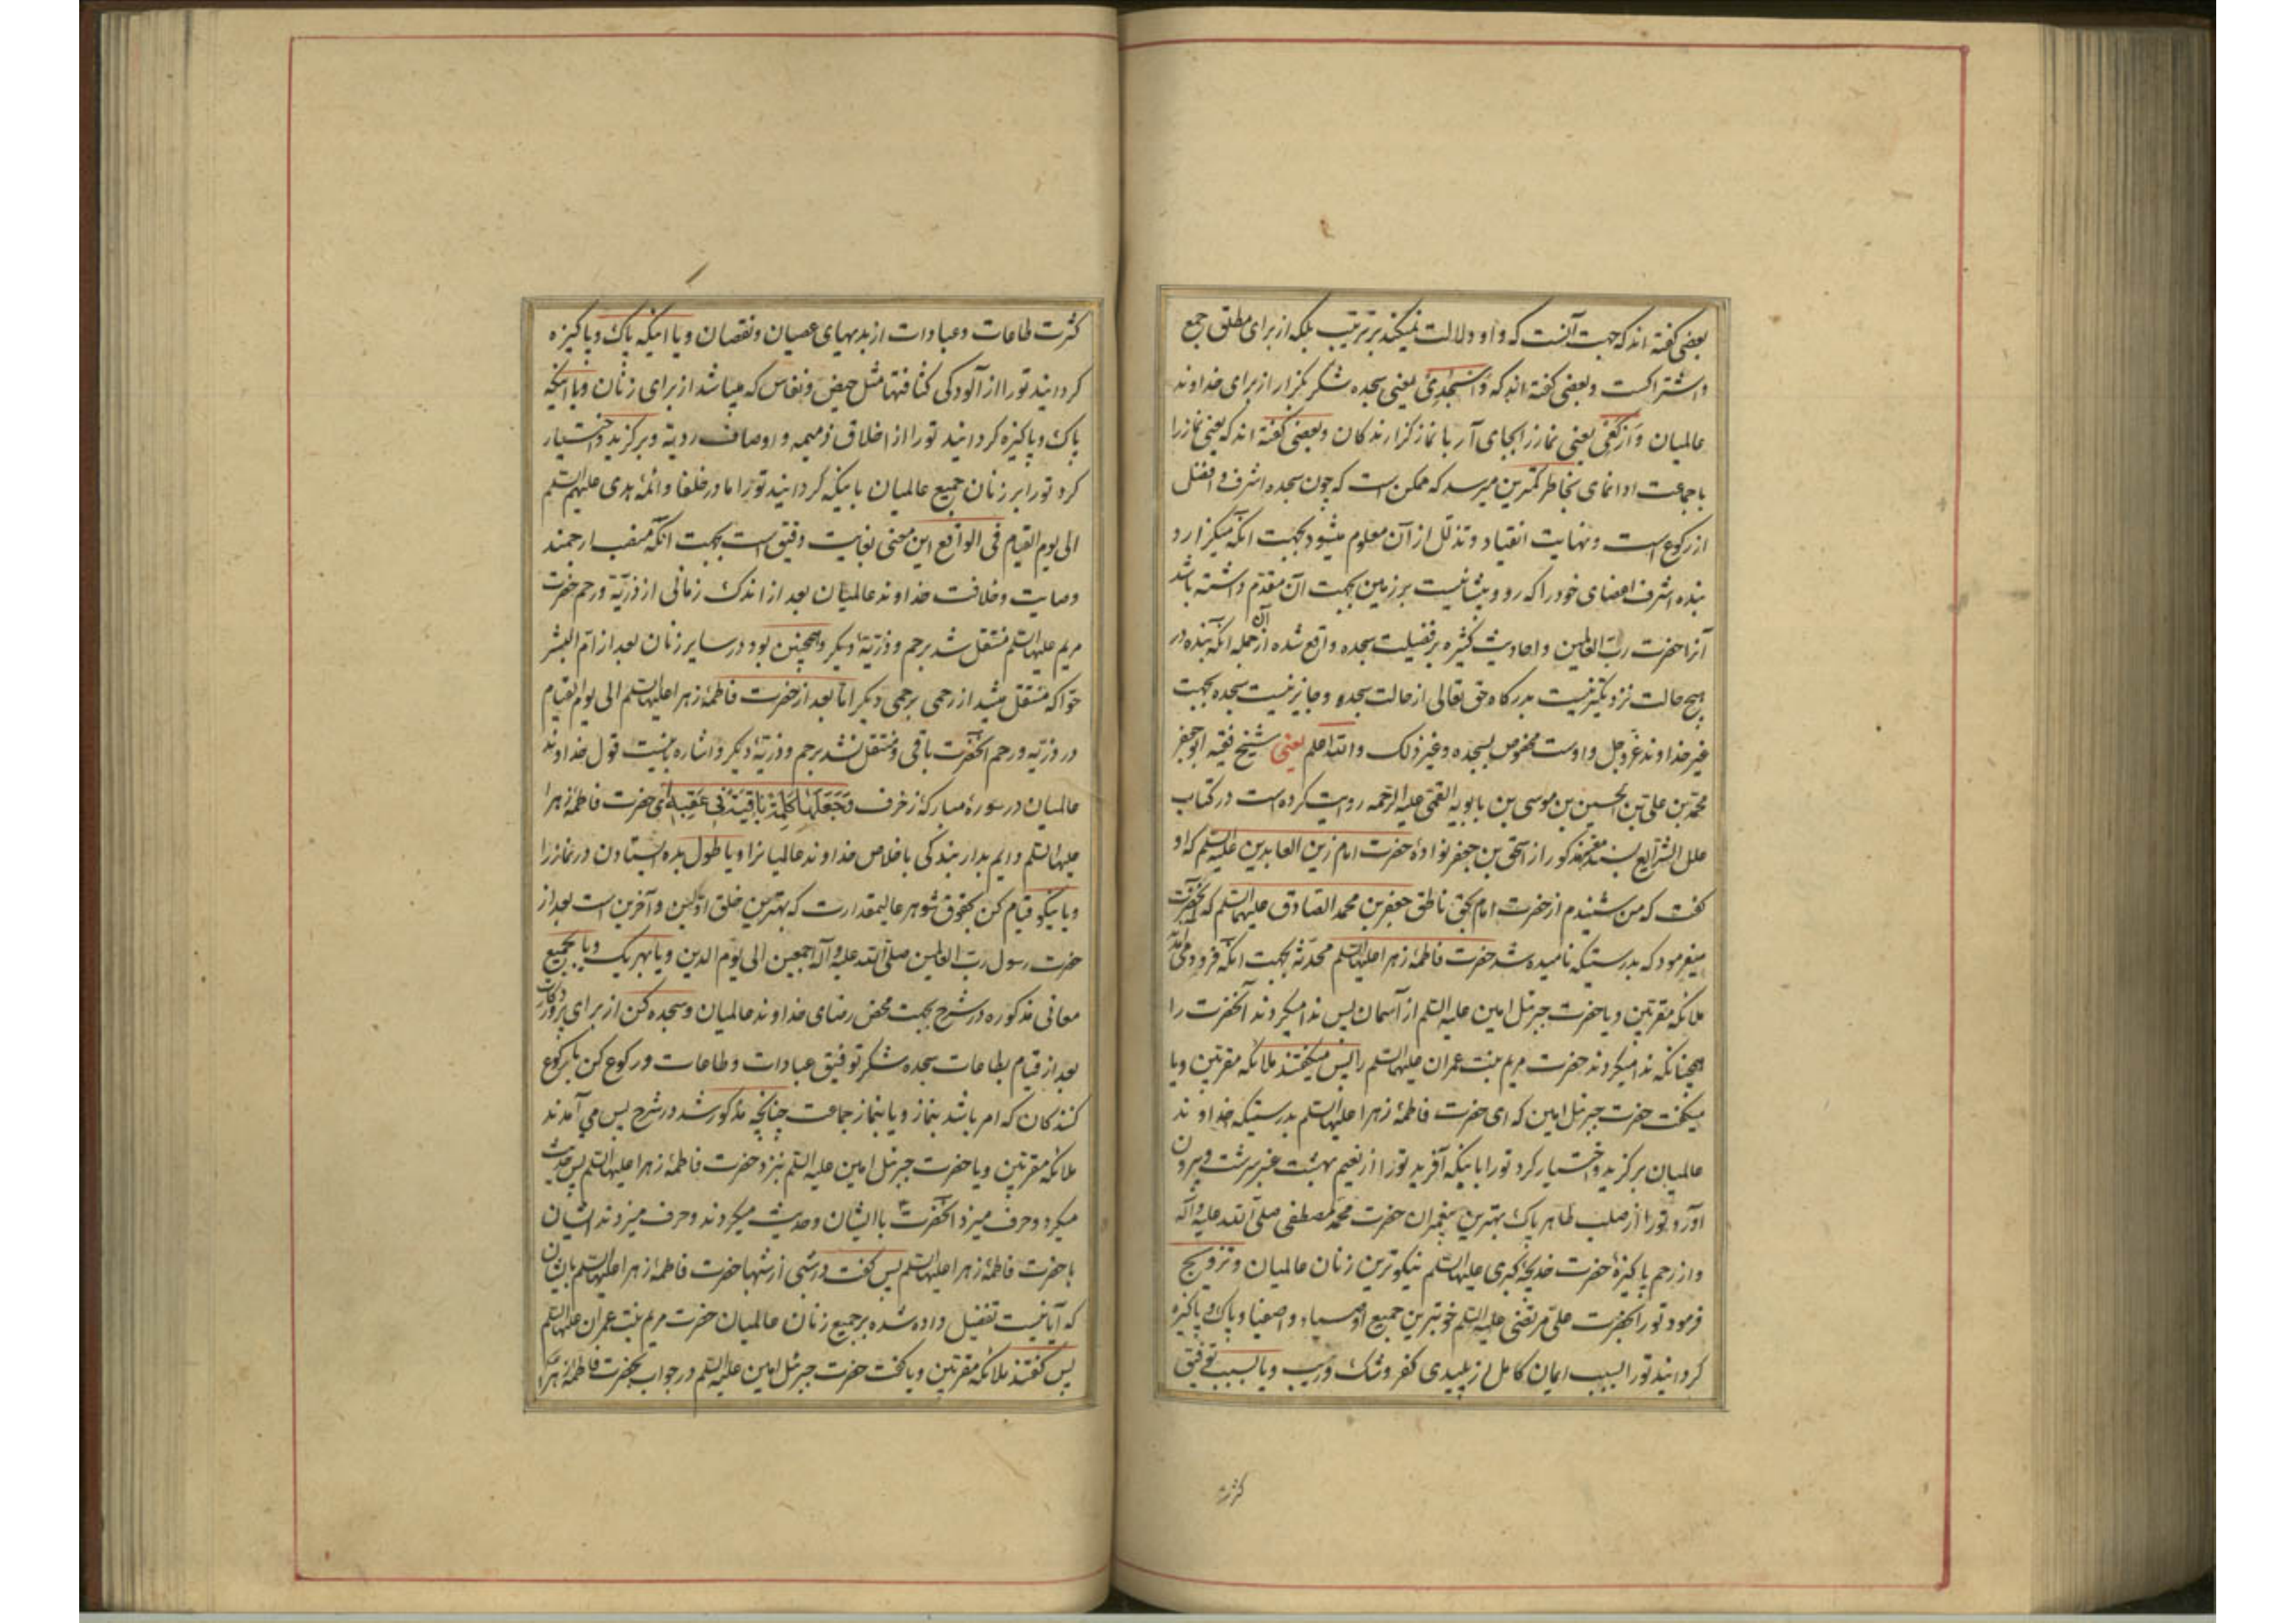 بعضی گفته اند که جهت آنست که واو دلالت نمیکند بر ترتیب بلکه از برای مطلق جمع
و اشتراکست و بعضی گفته اند که وَاسْجُدِی یعنی سجده شکر بگزار از برای خداوند
عالمیان وَارْکَعِی یعنی نماز را بجای آر با نماز گزارندکان و بعضی گفته اند که یعنی نماز را
با جماعت ادا نمای بخاطر کمترین میرسد که ممکن است که چون سجده اشرف و افضل
از رکوع است و نهایت انقیاد و تذلّل از آن معلوم میشود بجهت آنکه میگزارد
بنده اشرف اعضای خود را که رو و پیشانیست بر زمین بجهت آن مقدّم داشته باشد
آنرا حضرت ربّ العالمین و احادیث کثیره بر فضیلت سجده واقع شده از آن جمله آنکه بنده در
هیچ حالت نزدیکتر نیست بدرکاه حق تعالی از حالت سجده و جایز نیست سجده بجهت
غیر خداوند عزّ وجل و اوست مخصوص بسجده و غیر ذلک والله اعلم یعنی شیخ فقیه ابو جعفر
محمّد بن علی بن الحسین بن موسی بن بابویه القمی علیه الرحمه روایت کرده است در کتاب
علل الشرایع بسند مذکور از اسحق بن جعفر نوادهٔ حضرت امام زین العابدین علیه السلم که او
گفت که من شنیدم از حضرت امام بحق ناطق جعفر بن محمد الصادق علیهما السلم که آنحضرت
میفرمود که بدرستیکه نامیده شد حضرت فاطمهٔ زهرا علیها السلم محدّثه بجهت آنکه فرود می آمدند
ملائکه مقرّبین و یا حضرت جبرئیل امین علیه السلم از آسمان پس ندا میکردند آنحضرت را
همچنانکه ندا میکردند حضرت مریم بنت عمران علیهما السلم را پس میگفتند ملائکه مقرّبین و یا
میگفت حضرت جبرئیل امین که ای حضرت فاطمهٔ زهرا علیها السلم بدرستیکه خداوند
عالمیان برگزید و اختیار کرد تو را باینکه آفرید تو را از نعیم بهشت عنبر سرشت و بیرون
آورد تو را از صلب طاهر پاک بهترین پیغمبران حضرت محمّد مصطفی صلّی الله علیه و آله
و از رحم پاکیزهٔ حضرت خدیجهٔ کبری علیها السلم نیکوترین زنان عالمیان و تزویج
فرمود تو را بحضرت علیّ مرتضی علیه السلم خوبترین جمیع اوصیاء و اصفیا و پاک و پاکیزه
کردانید تو را بسبب ایمان کامل از پلیدی کفر و شک و ریب و یا بسبب توفیق
کثرت
کثرت طاعات و عبادات از بدیهای عصیان و نقصان و یا اینکه پاک و پاکیزه
کردانید تو را از آلودکی کثافتها مثل حیض و نفاس که میباشد از برای زنان و یا اینکه
پاک و پاکیزه کردانید تو را از اخلاق ذمیمه و اوصاف ردیّه و برگزید و اختیار
کرد تو را بر زنان جمیع عالمیان باینکه کردانید تو را مادر خلفا و ائمّهٔ هدی علیهم السلم
الی یوم القیام فی الواقع این معنی بغایت دقیق است بجهت آنکه منصب ارجمند
وصایت و خلافت خداوند عالمیان بعد از اندک زمانی از ذرّیّه و رحم حضرت
مریم علیها السلم منتقل شد برحم و ذرّیّهٔ دیگر و همچنین بود در سایر زنان بعد از امّ البشر
حوّا که منتقل میشد از رحمی برحمی دیگر امّا بعد از حضرت فاطمهٔ زهرا علیها السلم الی یوم القیام
در ذرّیّه و رحم آنحضرت باقی و منتقل نشد برحم و ذرّیّهٔ دیگر و اشاره باینست قول خداوند
عالمیان در سورهٔ مبارکهٔ زخرف وَجَعَلَهَا کَلِمَةً بَاقِیَةً فِی عَقِبِهِ ای حضرت فاطمهٔ زهرا
علیها السلم دایم بدار بندکی باخلاص خداوند عالمیانرا و یا طول بده ایستادن در نماز را
و یا نیکو قیام کن بحقوق شوهر عالیمقدارت که بهترین خلق اوّلین و آخرین است بعد از
حضرت رسول ربّ العالمین صلّی الله علیه و آله اجمعین الی یوم الدین و یا بهر یک و یا بجمیع
معانی مذکوره در شرح بجهت محض رضای خداوند عالمیان و سجده کن از برای پروردکارت
بعد از قیام بطاعات سجده شکر توفیق عبادات و طاعات و رکوع کن با رکوع
کنندکان که امر باشد بنماز و یا بنماز جماعت چنانچه مذکور شد در شرح پس می آمدند
ملائکه مقرّبین و یا حضرت جبرئیل امین علیه السلم بنزد حضرت فاطمهٔ زهرا علیها السلم پس حدیث
میکرد و حرف میزد آنحضرت با ایشان و حدیث میکردند و حرف میزدند ایشان
با حضرت فاطمهٔ زهرا علیها السلم پس گفت در شبی از شبها حضرت فاطمهٔ زهرا علیها السلم بایشان
که آیا نیست تفضیل داده شده بر جمیع زنان عالمیان حضرت مریم بنت عمران علیهما السلم
پس گفتند ملائکه مقرّبین و یا گفت حضرت جبرئیل امین علیه السلم در جواب بحضرت فاطمهٔ زهرا